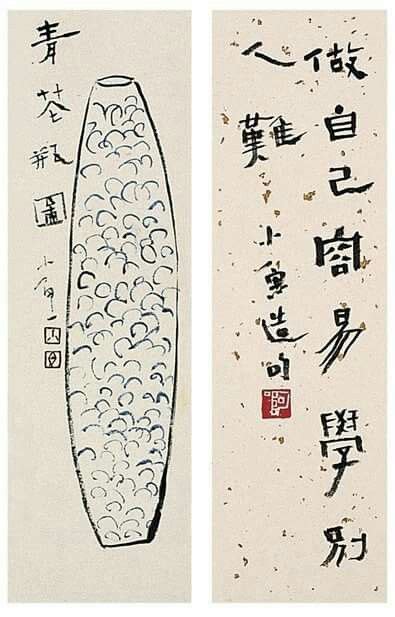 青花瓶圖
小魚
做自己容易學別
人難
小魚造句